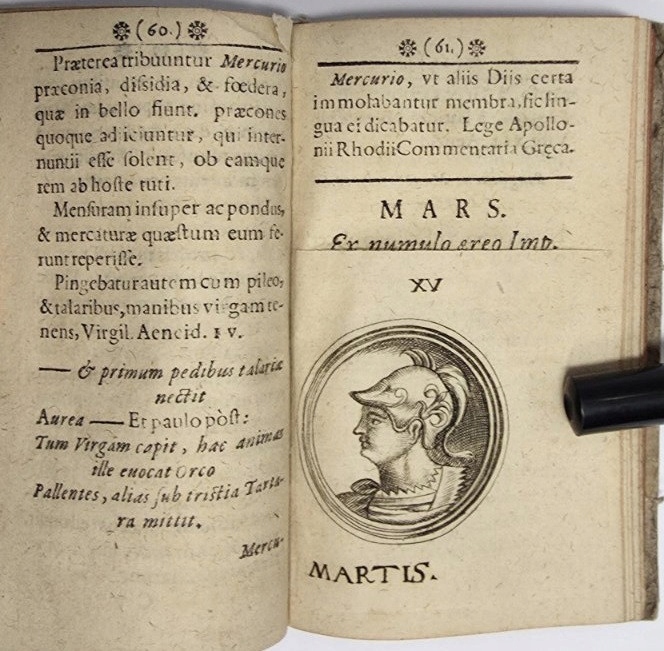 (60.)
Præterea tribuuntur Mercurio
præconia, dissidia, & fœdera,
quæ in bello fiunt. præcones
quoque adiciuntur, qui inter-
nuntii esse solent, ob eamque
rem ab hoste tuti.
Mensuram insuper ac pondus,
& mercaturæ quæstum eum fe-
runt reperisse.
Pingebatur autem cum pileo,
& talaribus, manibus virgam te-
nens, Virgil. Aeneid. IV.
— & primum pedibus talaria
nectit
Aurea — Et paulo pòst:
Tum Virgam capit, hac animas
ille euocat Orco
Pallentes, alias sub tristia Tarta-
ra mittit.
Mercu-
(61.)
Mercurio, vt aliis Diis certa
immolabantur membra, sic lin-
gua ei dicabatur. Lege Apollo-
nii Rhodii Commentaria Gręca.
MARS.
Ex numulo ęreo Imp.
XV
MARTIS.